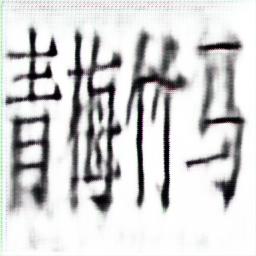 青梅竹马